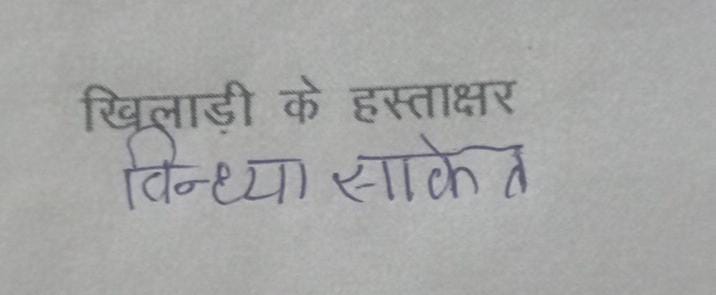 खिलाड़ी के हस्ताक्षर
विन्ध्या साकेत